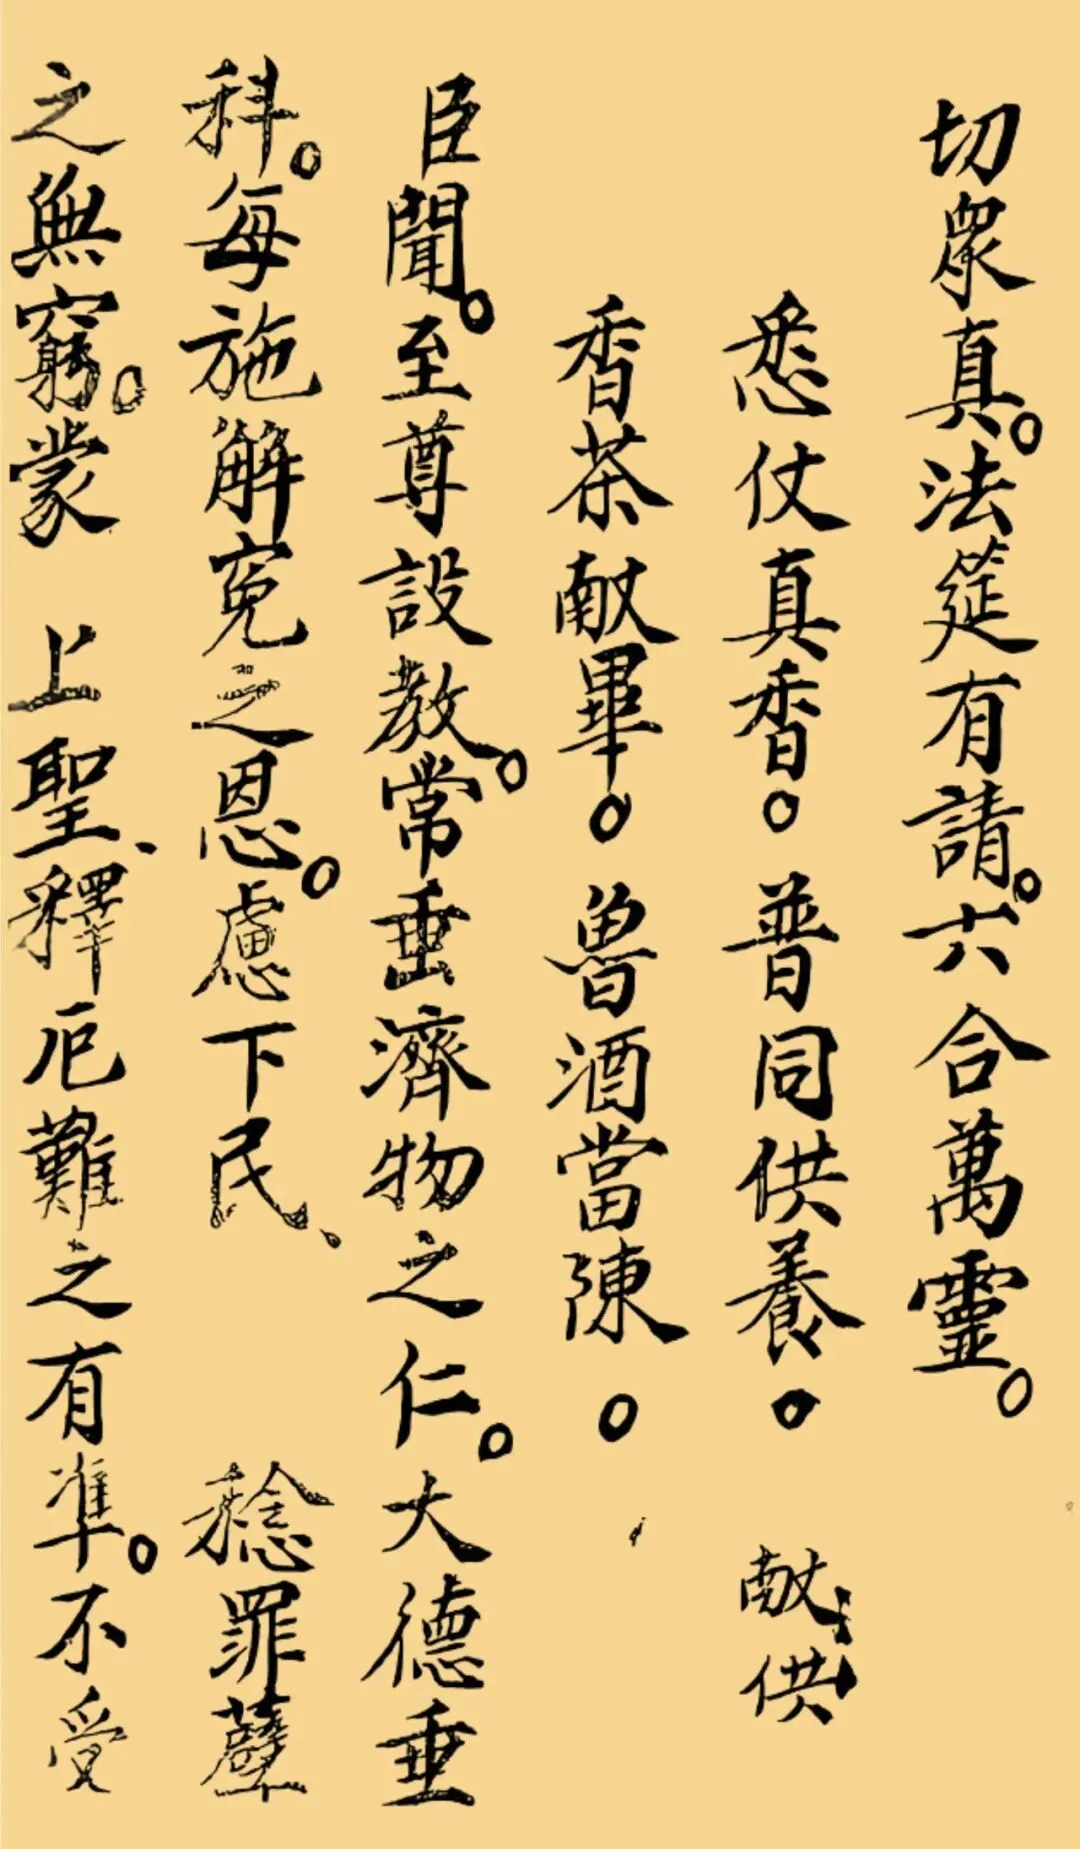 切眾真。法筵有請。六合萬靈。
悉仗真香。普同供養。 献供
香茶献畢。魯酒當陳。
臣聞。至尊設教。常垂濟物之仁。大德垂
科。每施解冤之恩。慮下民、 稔罪孽
之無窮。蒙 上聖、釋厄難之有準。不受